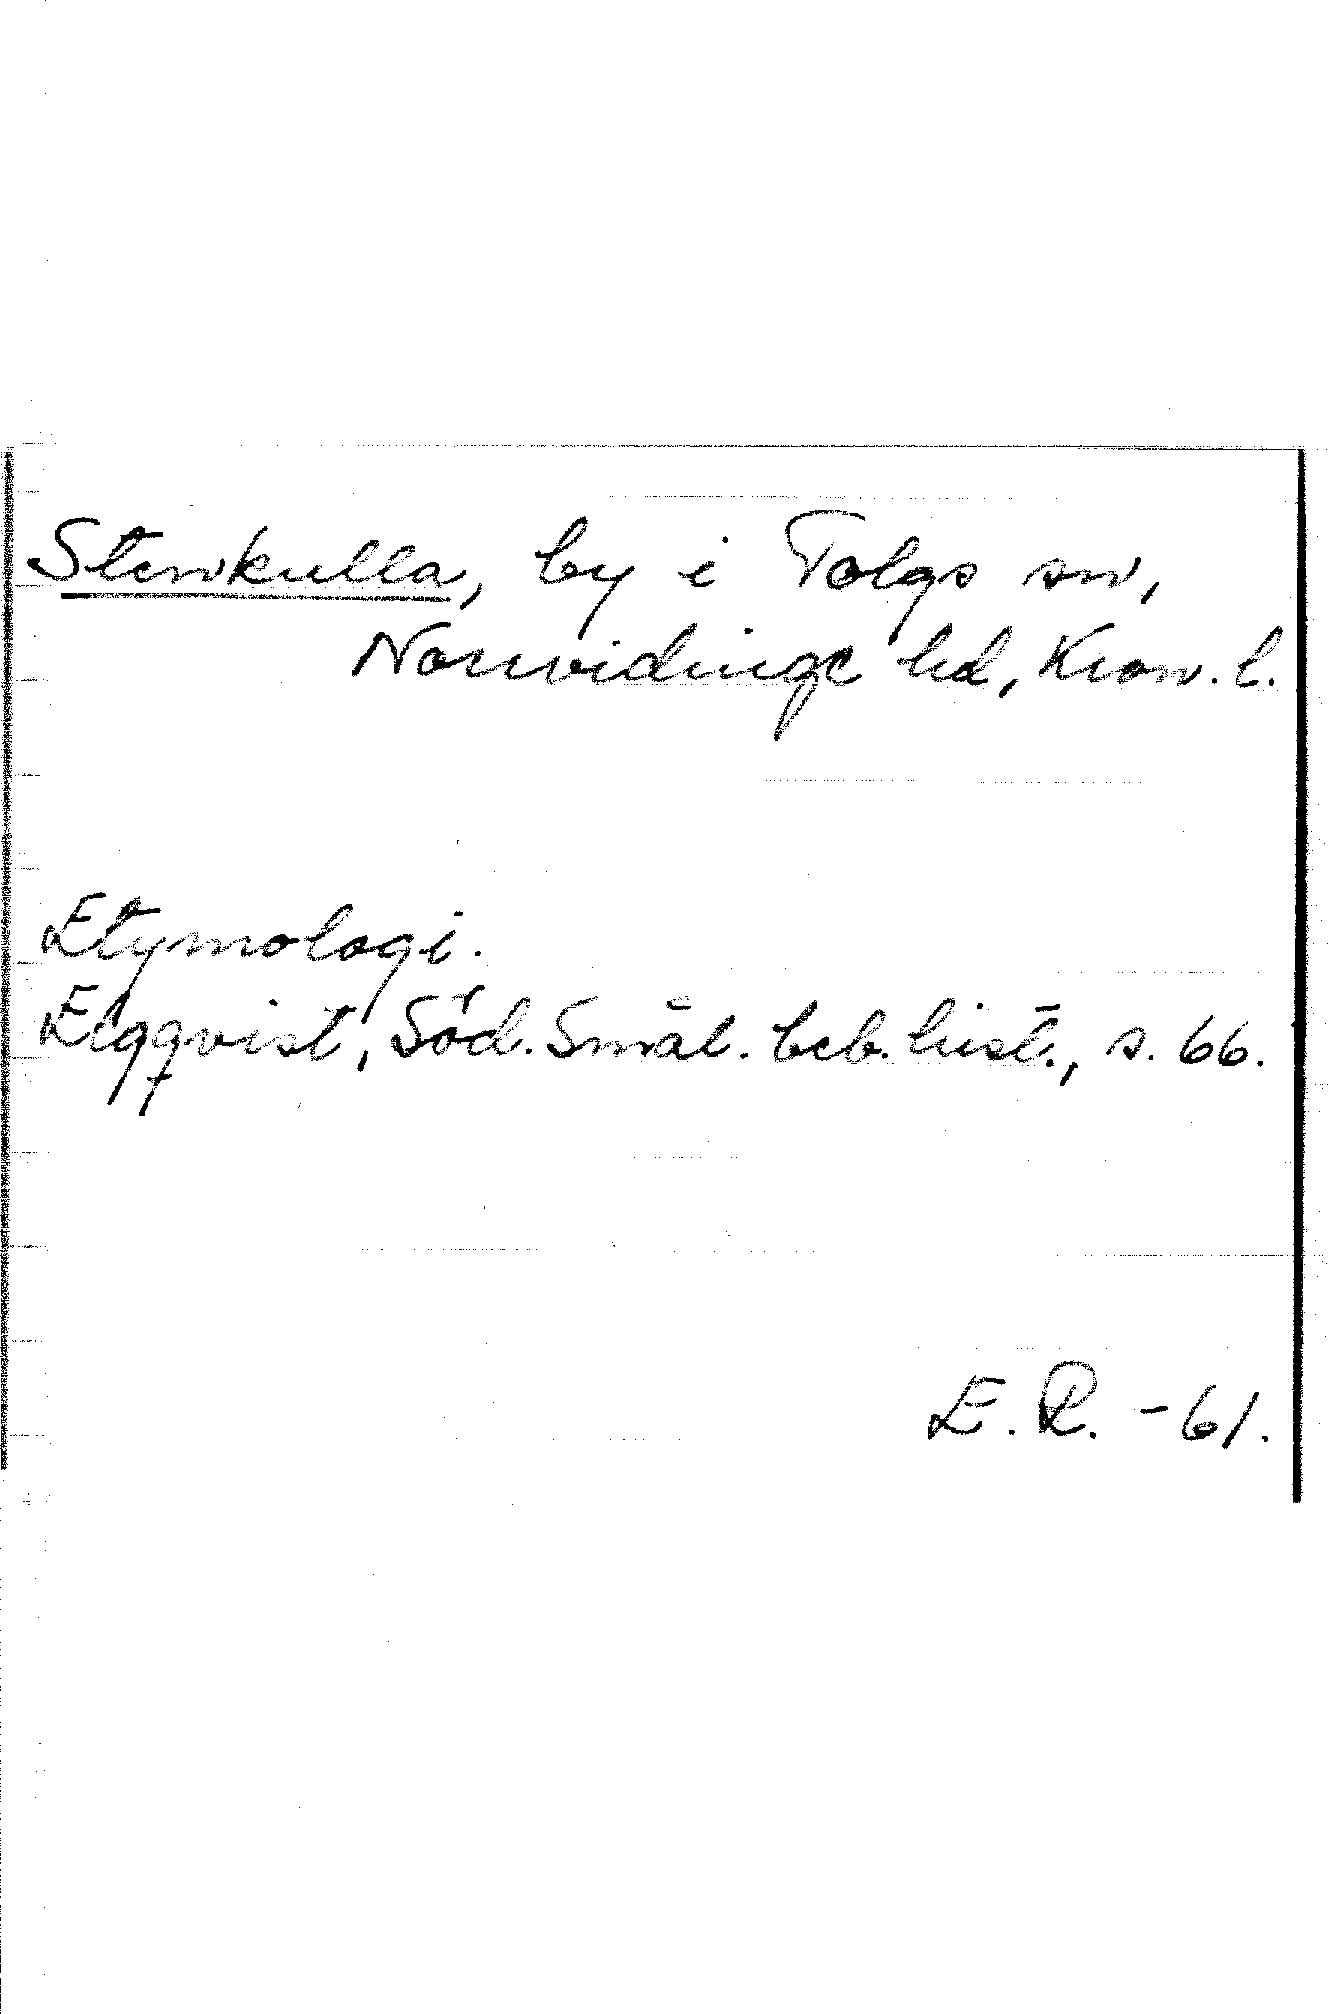 Stenkulla, by i Tolgs sn,
Norrvidinge hd, Kron. l.
Etymologi.
Elgqvist, Söd. Smål. beb. hist., s. 66.
E. R. -61.